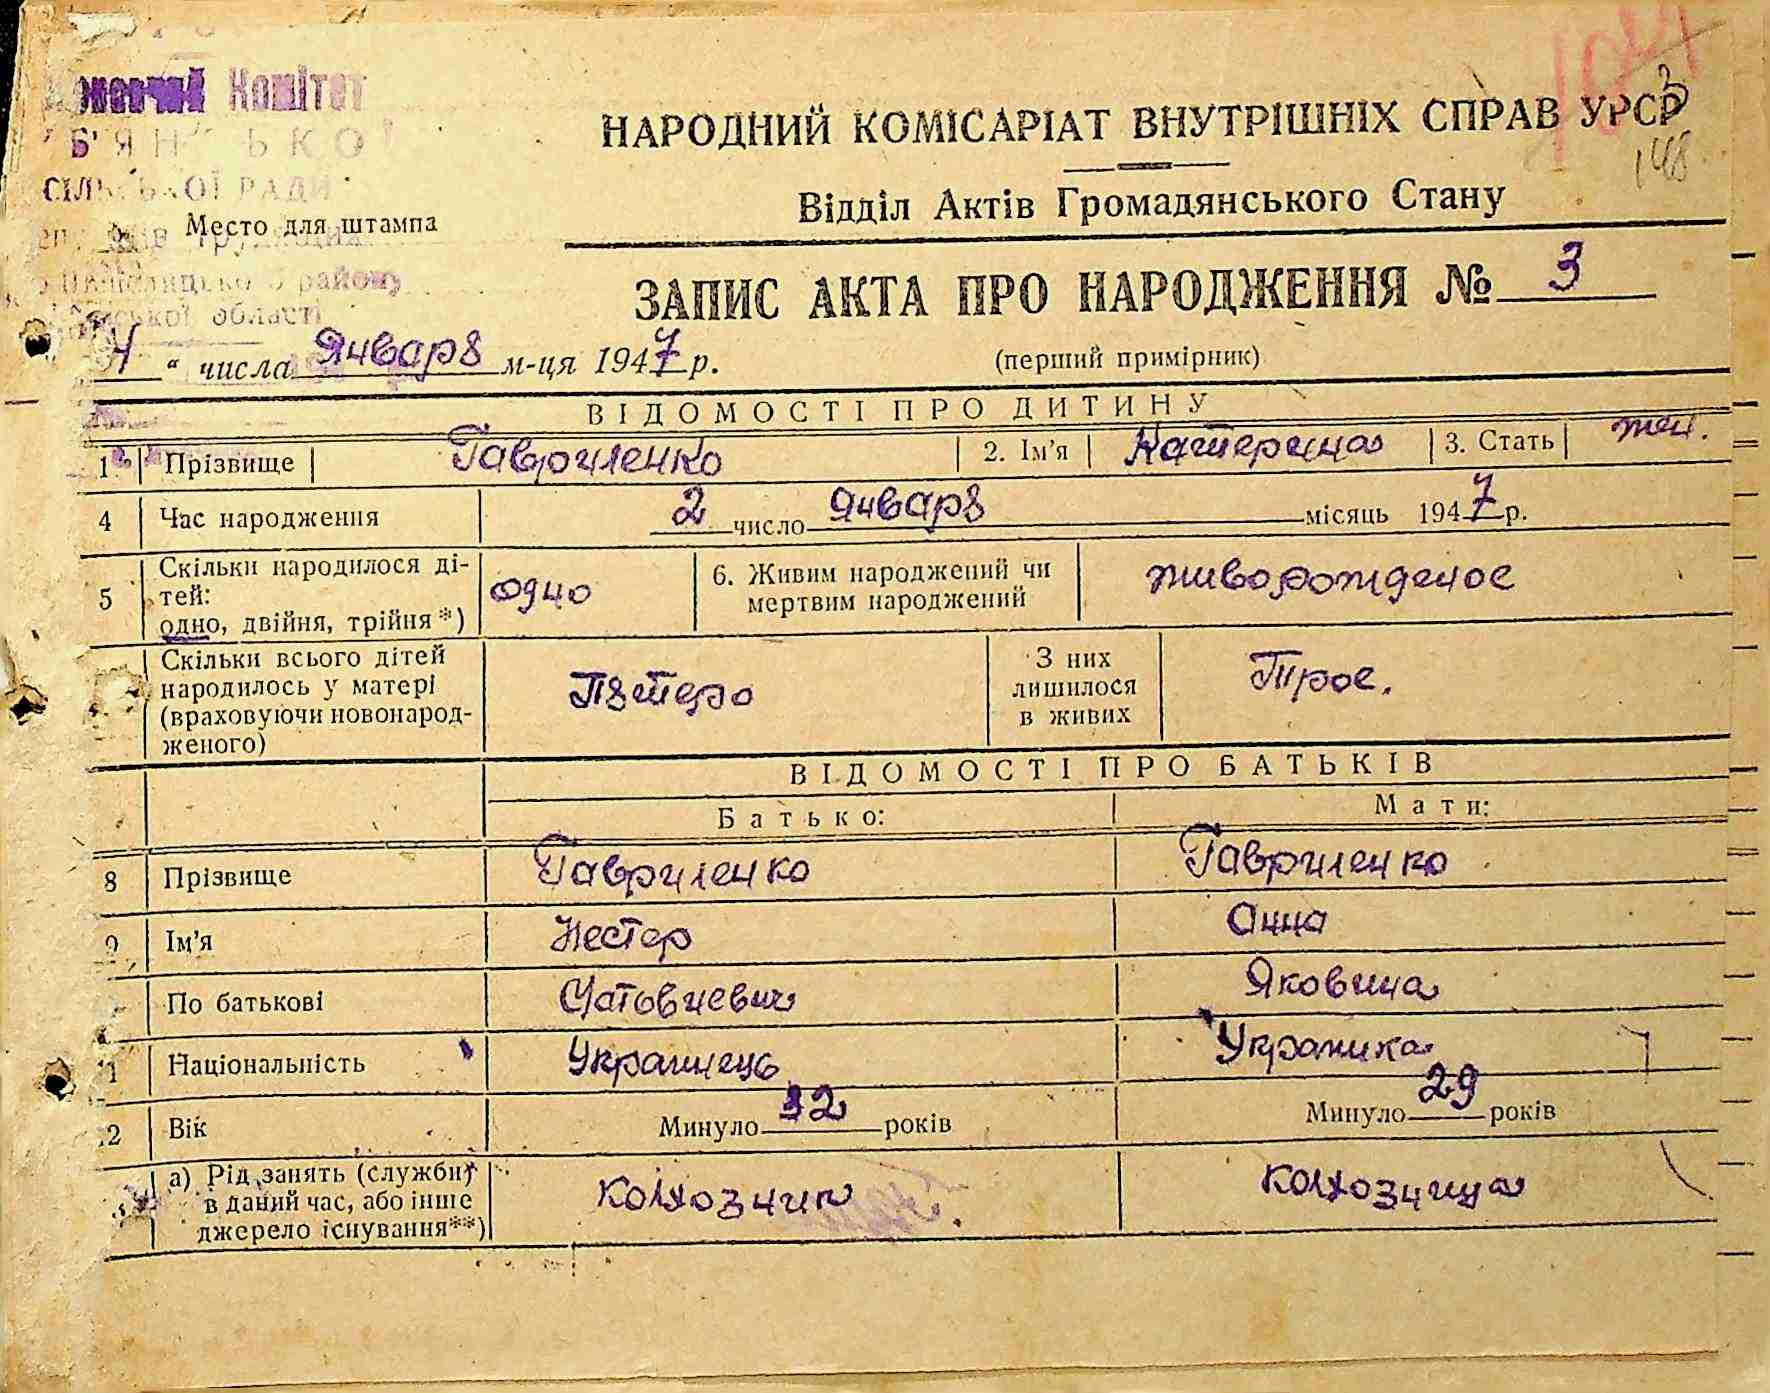 Комітет
СІЛЬСЬКОЇ РАДИ
Место для штампа
району
області
НАРОДНИЙ КОМІСАРІАТ ВНУТРІШНІХ СПРАВ УРСР
3
148
Відділ Актів Громадянського Стану
ЗАПИС АКТА ПРО НАРОДЖЕННЯ № 3
4 “ числа Января м-ця 1947 р.
(перший примірник)
ВІДОМОСТІ ПРО ДИТИНУ
1 Прізвище Гавриленко 2. Ім'я Катерина 3. Стать жен.
4 Час народження 2 число Января місяць 1947 р.
5 Скільки народилося ді-
тей:
одно, двійня, трійня*)
одно
6. Живим народжений чи
мертвим народжений
живорожденое
Скільки всього дітей
народилось у матері
(враховуючи новонарод-
женого)
Пятеро
З них
лишилося
в живих
Трое.
ВІДОМОСТІ ПРО БАТЬКІВ
Батько: Мати:
8 Прізвище Гавриленко Гавриленко
9 Ім'я Нестер Анна
По батькові Матвиевич Яковина
11 Національність Украинець Украинка
12 Вік Минуло 32 років Минуло 29 років
а) Рід занять (служби)
в даний час, або інше
джерело існування**)
колхозник колхозница